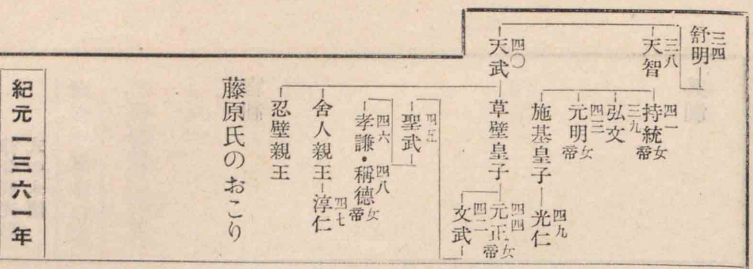 三四
舒明
三八
天智
四一
持統女帝
三九
弘文
四三
元明女帝
施基皇子
四九
光仁
四〇
天武
草壁皇子
四四
元正女帝
四二
文武
四五
聖武
四六 四八
孝謙・稱德女帝
舍人親王
四七
淳仁
忍壁親王
藤原氏のおこり
紀元一三六一年